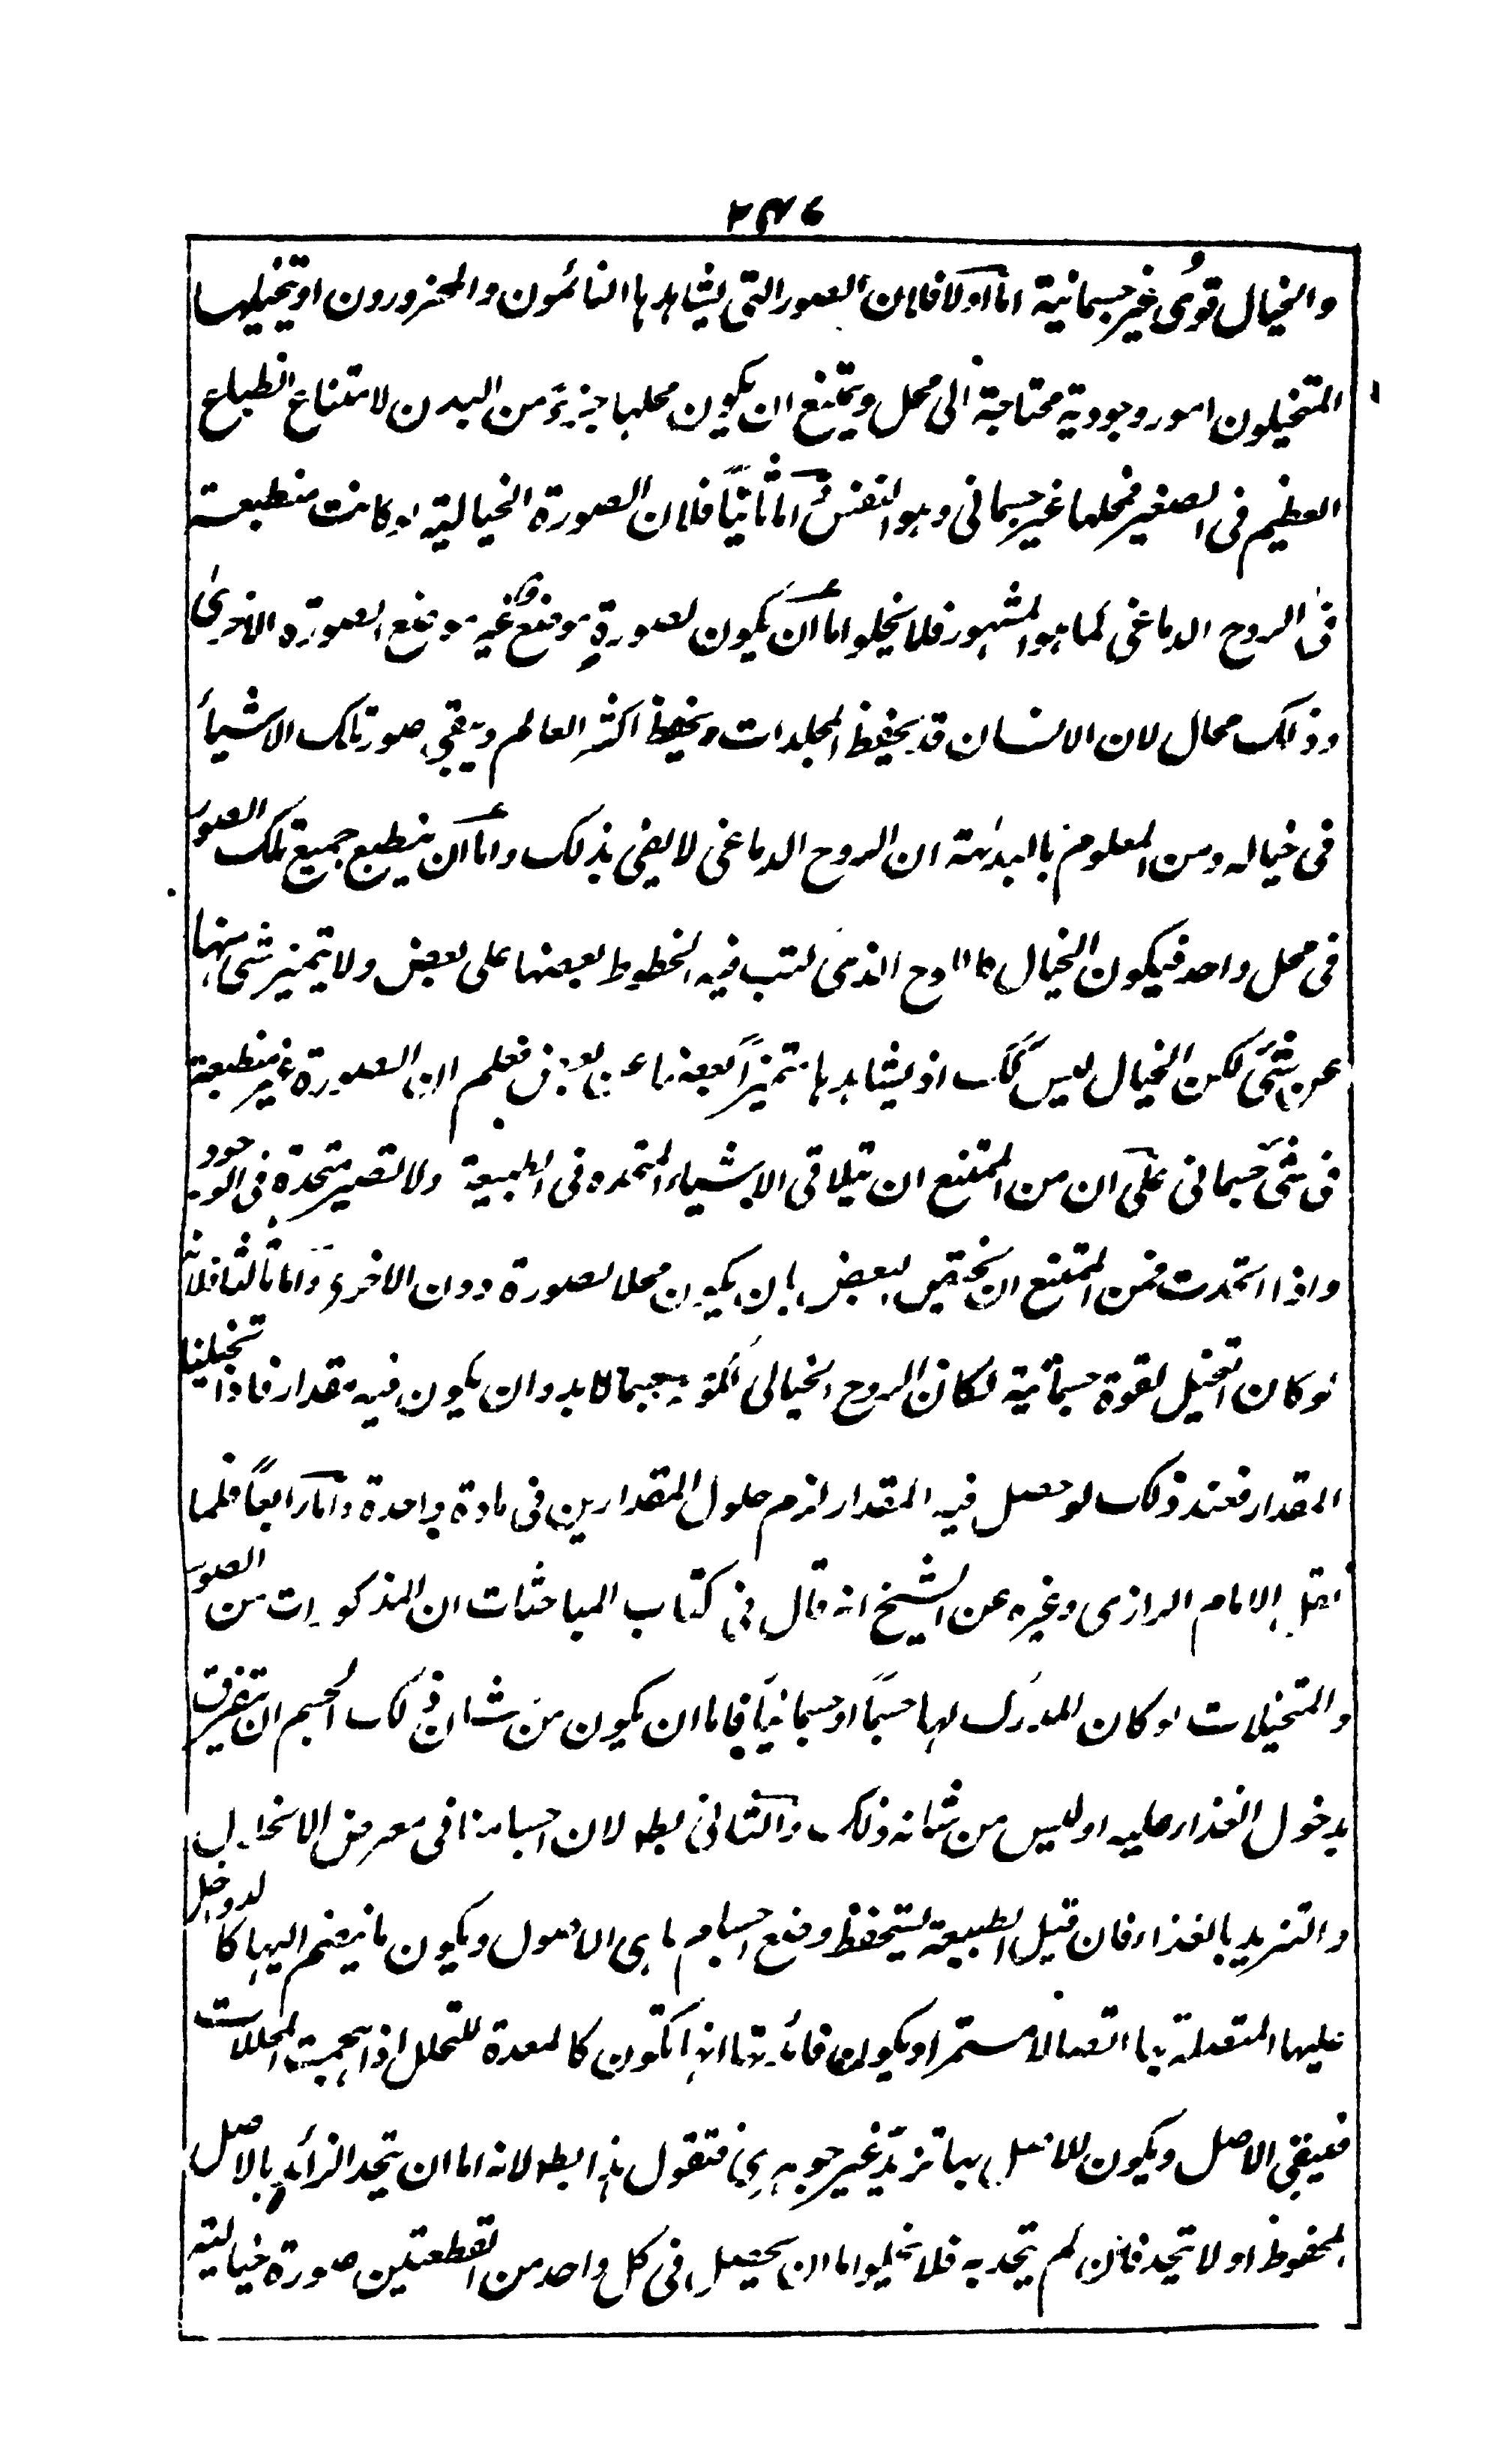 ٢٣٦
والخيال قوى غير جسمانية اما اولا فلان الصور التى يشاهدها النائمون والمحرورون او يتخيلها
المتخيلون امور وجودية محتاجة الى محل ويمتنع ان يكون محلها جزء من البدن لامتناع انطباع
العظيم فى الصغير فمحلها غير جسمانى وهو النفس واما ثانيا فلان الصورة الخيالية لو كانت منطبعة
فى الروح الدماغى كما هو المشهور فلا يخلو اما ان يكون لصورة موضع غير موضع الصورة الاخرى
وذلك محال لان الانسان قد يحفظ المجلدات ويحفظ اكثر العالم ويبقى صور تلك الاشياء
فى خياله ومن المعلوم بالبديهة ان الروح الدماغى لا يفى بذلك واما ان ينطبع جميع تلك الصور
فى محل واحد فيكون الخيال كاللوح الذى كتب فيه الخطوط بعضها على بعض ولا يتميز شئ منها
عن شئ لكن الخيال ليس كك اذ يشاهدها متميزا بعضها عن بعض فعلم ان الصورة غير منطبعة
فى شئ جسمانى على ان من الممتنع ان يتلاقى الاشياء المتحدة فى الطبيعة ولا تصير متحدة فى الوجود
واذا اتحدت فمن الممتنع ان يختص بعض بان يكون محلا لصورة دون الاخرى واما ثالثا فلانه
لو كان التخيل لقوة جسمانية لكان الروح الخيالى لابد وان يكون فيه مقدار فاذا تخيلنا
المقدار فعند ذلك لو حصل فيه المقدار لزم حلول المقدارين فى مادة واحدة واما رابعا فلما
نقل الامام الرازى وغيره عن الشيخ انه قال فى كتاب المباحثات ان المذكورات من الصور
والمتخيلات لو كان المدرك لها جسما او جسمانيا فاما ان يكون من شان ذلك الجسم ان يتفرق
بدخول الغذاء عليه او ليس من شانه ذلك والثانى بط لان اجسامنا فى معرض الانحلال
والتزيد بالغذاء فان قيل الطبيعة تستحفظ وضع اجسام ما هى الاصول ويكون ما ينضم اليها كالدواخل
عليها المتصلة بها اتصالا مستمرا ويكون فائدتها انها تكون كالمعدة للتحلل اذا هجمت المحللات
فيبقى الاصل ويكون للاصل بها تزيد غير جوهرى فتقول هذا بط لانه اما ان يتحد الزائد بالاصل
المحفوظ او لا يتحد فان لم يتحد به فلا يخلو اما ان يحصل فى كل واحد من القطعتين صورة خيالية